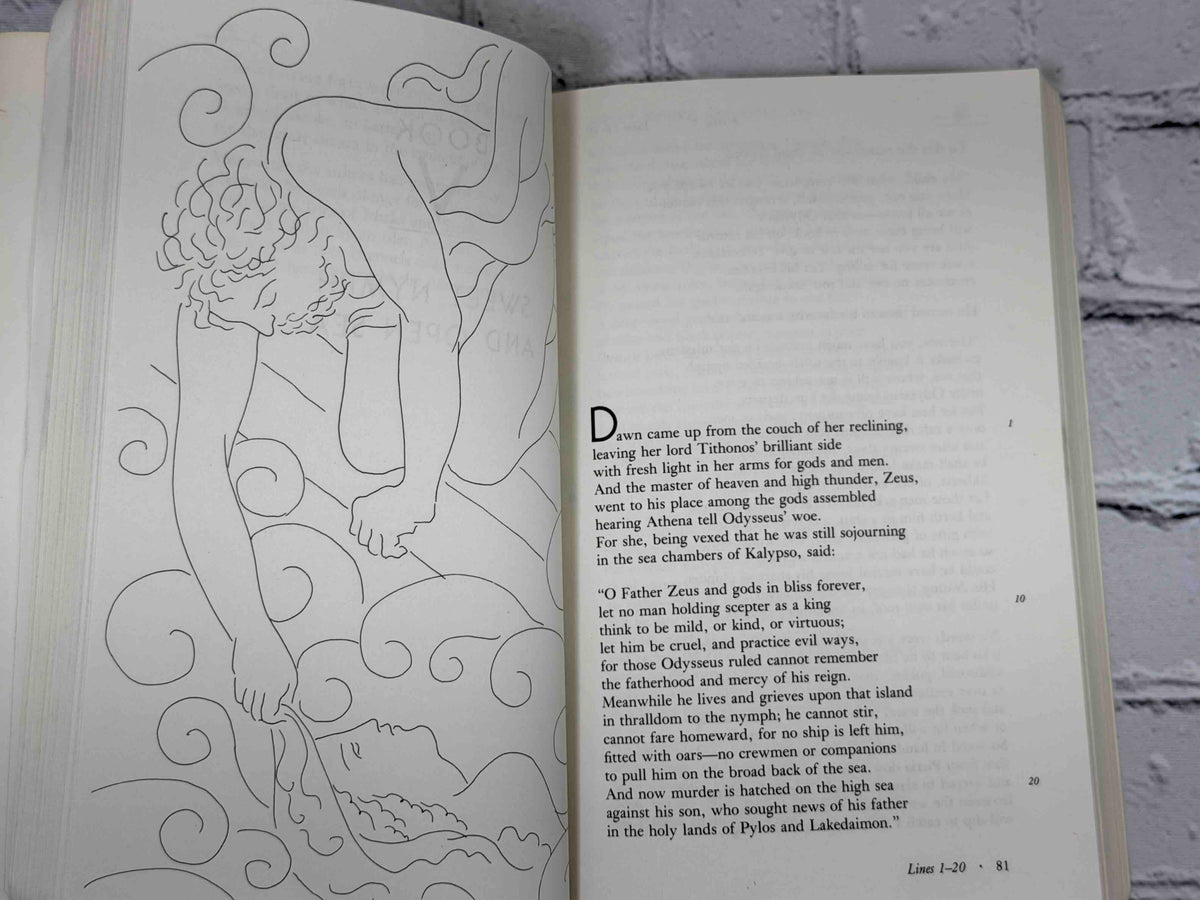 Dawn came up from the couch of her reclining,
1
leaving her lord Tithonos' brilliant side
with fresh light in her arms for gods and men.
And the master of heaven and high thunder, Zeus,
went to his place among the gods assembled
hearing Athena tell Odysseus' woe.
For she, being vexed that he was still sojourning
in the sea chambers of Kalypso, said:
“O Father Zeus and gods in bliss forever,
let no man holding scepter as a king
10
think to be mild, or kind, or virtuous;
let him be cruel, and practice evil ways,
for those Odysseus ruled cannot remember
the fatherhood and mercy of his reign.
Meanwhile he lives and grieves upon that island
in thralldom to the nymph; he cannot stir,
cannot fare homeward, for no ship is left him,
fitted with oars—no crewmen or companions
to pull him on the broad back of the sea.
And now murder is hatched on the high sea
20
against his son, who sought news of his father
in the holy lands of Pylos and Lakedaimon.”
Lines 1–20 · 81